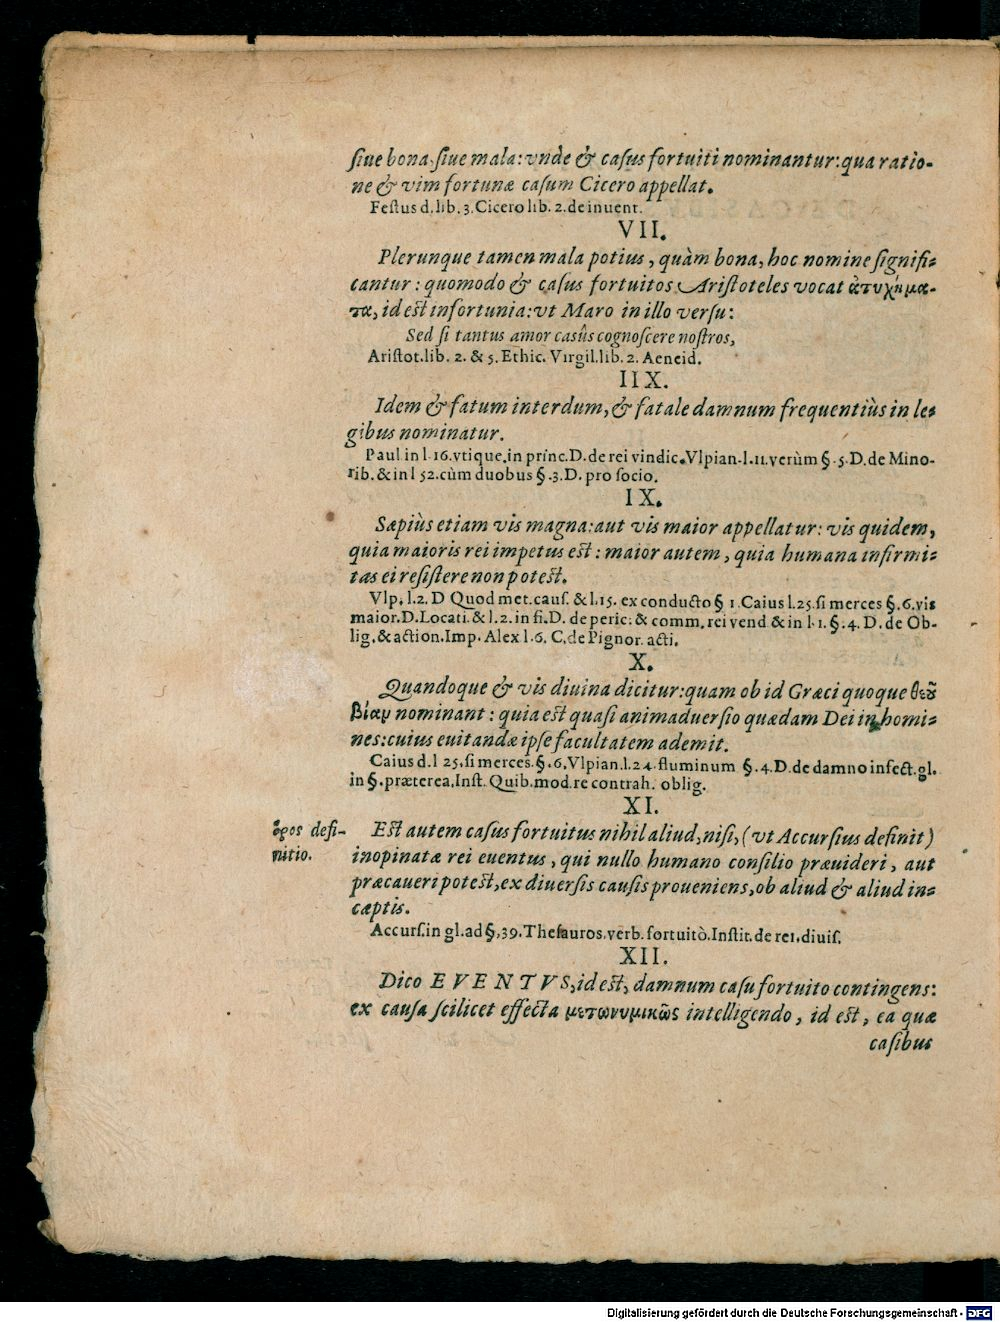 ſiue bona, ſiue mala: vnde & caſus fortuiti nominantur: qua ratio-
ne & vim fortunæ caſum Cicero appellat.
Feſtus d. lib. 3. Cicero lib. 2. de inuent.
VII.
Plerunque tamen mala potius, quàm bona, hoc nomine ſignifi-
cantur: quomodo & caſus fortuitos Ariſtoteles vocat ἀτυχήμα-
τα, id eſt infortunia: vt Maro in illo verſu:
Sed ſi tantus amor caſûs cognoſcere noſtros,
Ariſtot. lib. 2. & 5. Ethic. Virgil. lib. 2. Aeneid.
IIX.
Idem & fatum interdum, & fatale damnum frequentiùs in le-
gibus nominatur.
Paul in l. 16. vtique. in princ. D. de rei vindic. Vlpian. l. 11. verùm §. 5. D. de Mino-
rib. & in l 52. cùm duobus §. 3. D. pro ſocio.
IX.
Sæpiùs etiam vis magna: aut vis maior appellatur: vis quidem,
quia maioris rei impetus eſt: maior autem, quia humana infirmi-
tas ei reſiſtere non poteſt.
Vlp. l. 2. D Quod met. cauſ. & l. 15. ex conducto § 1. Caius l. 25. ſi merces §. 6. vis
maior. D. Locati. & l. 2. in fi. D. de peric: & comm. rei vend & in l. 1. §. 4. D. de Ob-
lig. & action. Imp. Alex l. 6. C. de Pignor. acti.
X.
Quandoque & vis diuina dicitur: quam ob id Græci quoque θεοῦ
βίαν nominant: quia eſt quaſi animaduerſio quædam Dei in homi-
nes: cuius euitandæ ipſe facultatem ademit.
Caius d. l 25. ſi merces. §. 6. Vlpian. l. 24. fluminum §. 4. D. de damno infect. gl.
in §. præterea, Inſt. Quib. mod. re contrah. oblig.
XI.
ὅρος defi-
nitio.
Eſt autem caſus fortuitus nihil aliud, niſi, (vt Accurſius definit)
inopinatæ rei euentus, qui nullo humano conſilio præuideri, aut
præcaueri poteſt, ex diuerſis cauſis proueniens, ob aliud & aliud in-
cæptis.
Accurſ. in gl. ad §. 39. Theſauros. verb. fortuitò. Inſtit. de rei. diuiſ.
XII.
Dico EVENTVS, id eſt, damnum caſu fortuito contingens:
ex cauſa ſcilicet effecta μετωνυμικῶς intelligendo, id eſt, ea quæ
caſibus
Digitalisierung gefördert durch die Deutsche Forschungsgemeinschaft - DFG